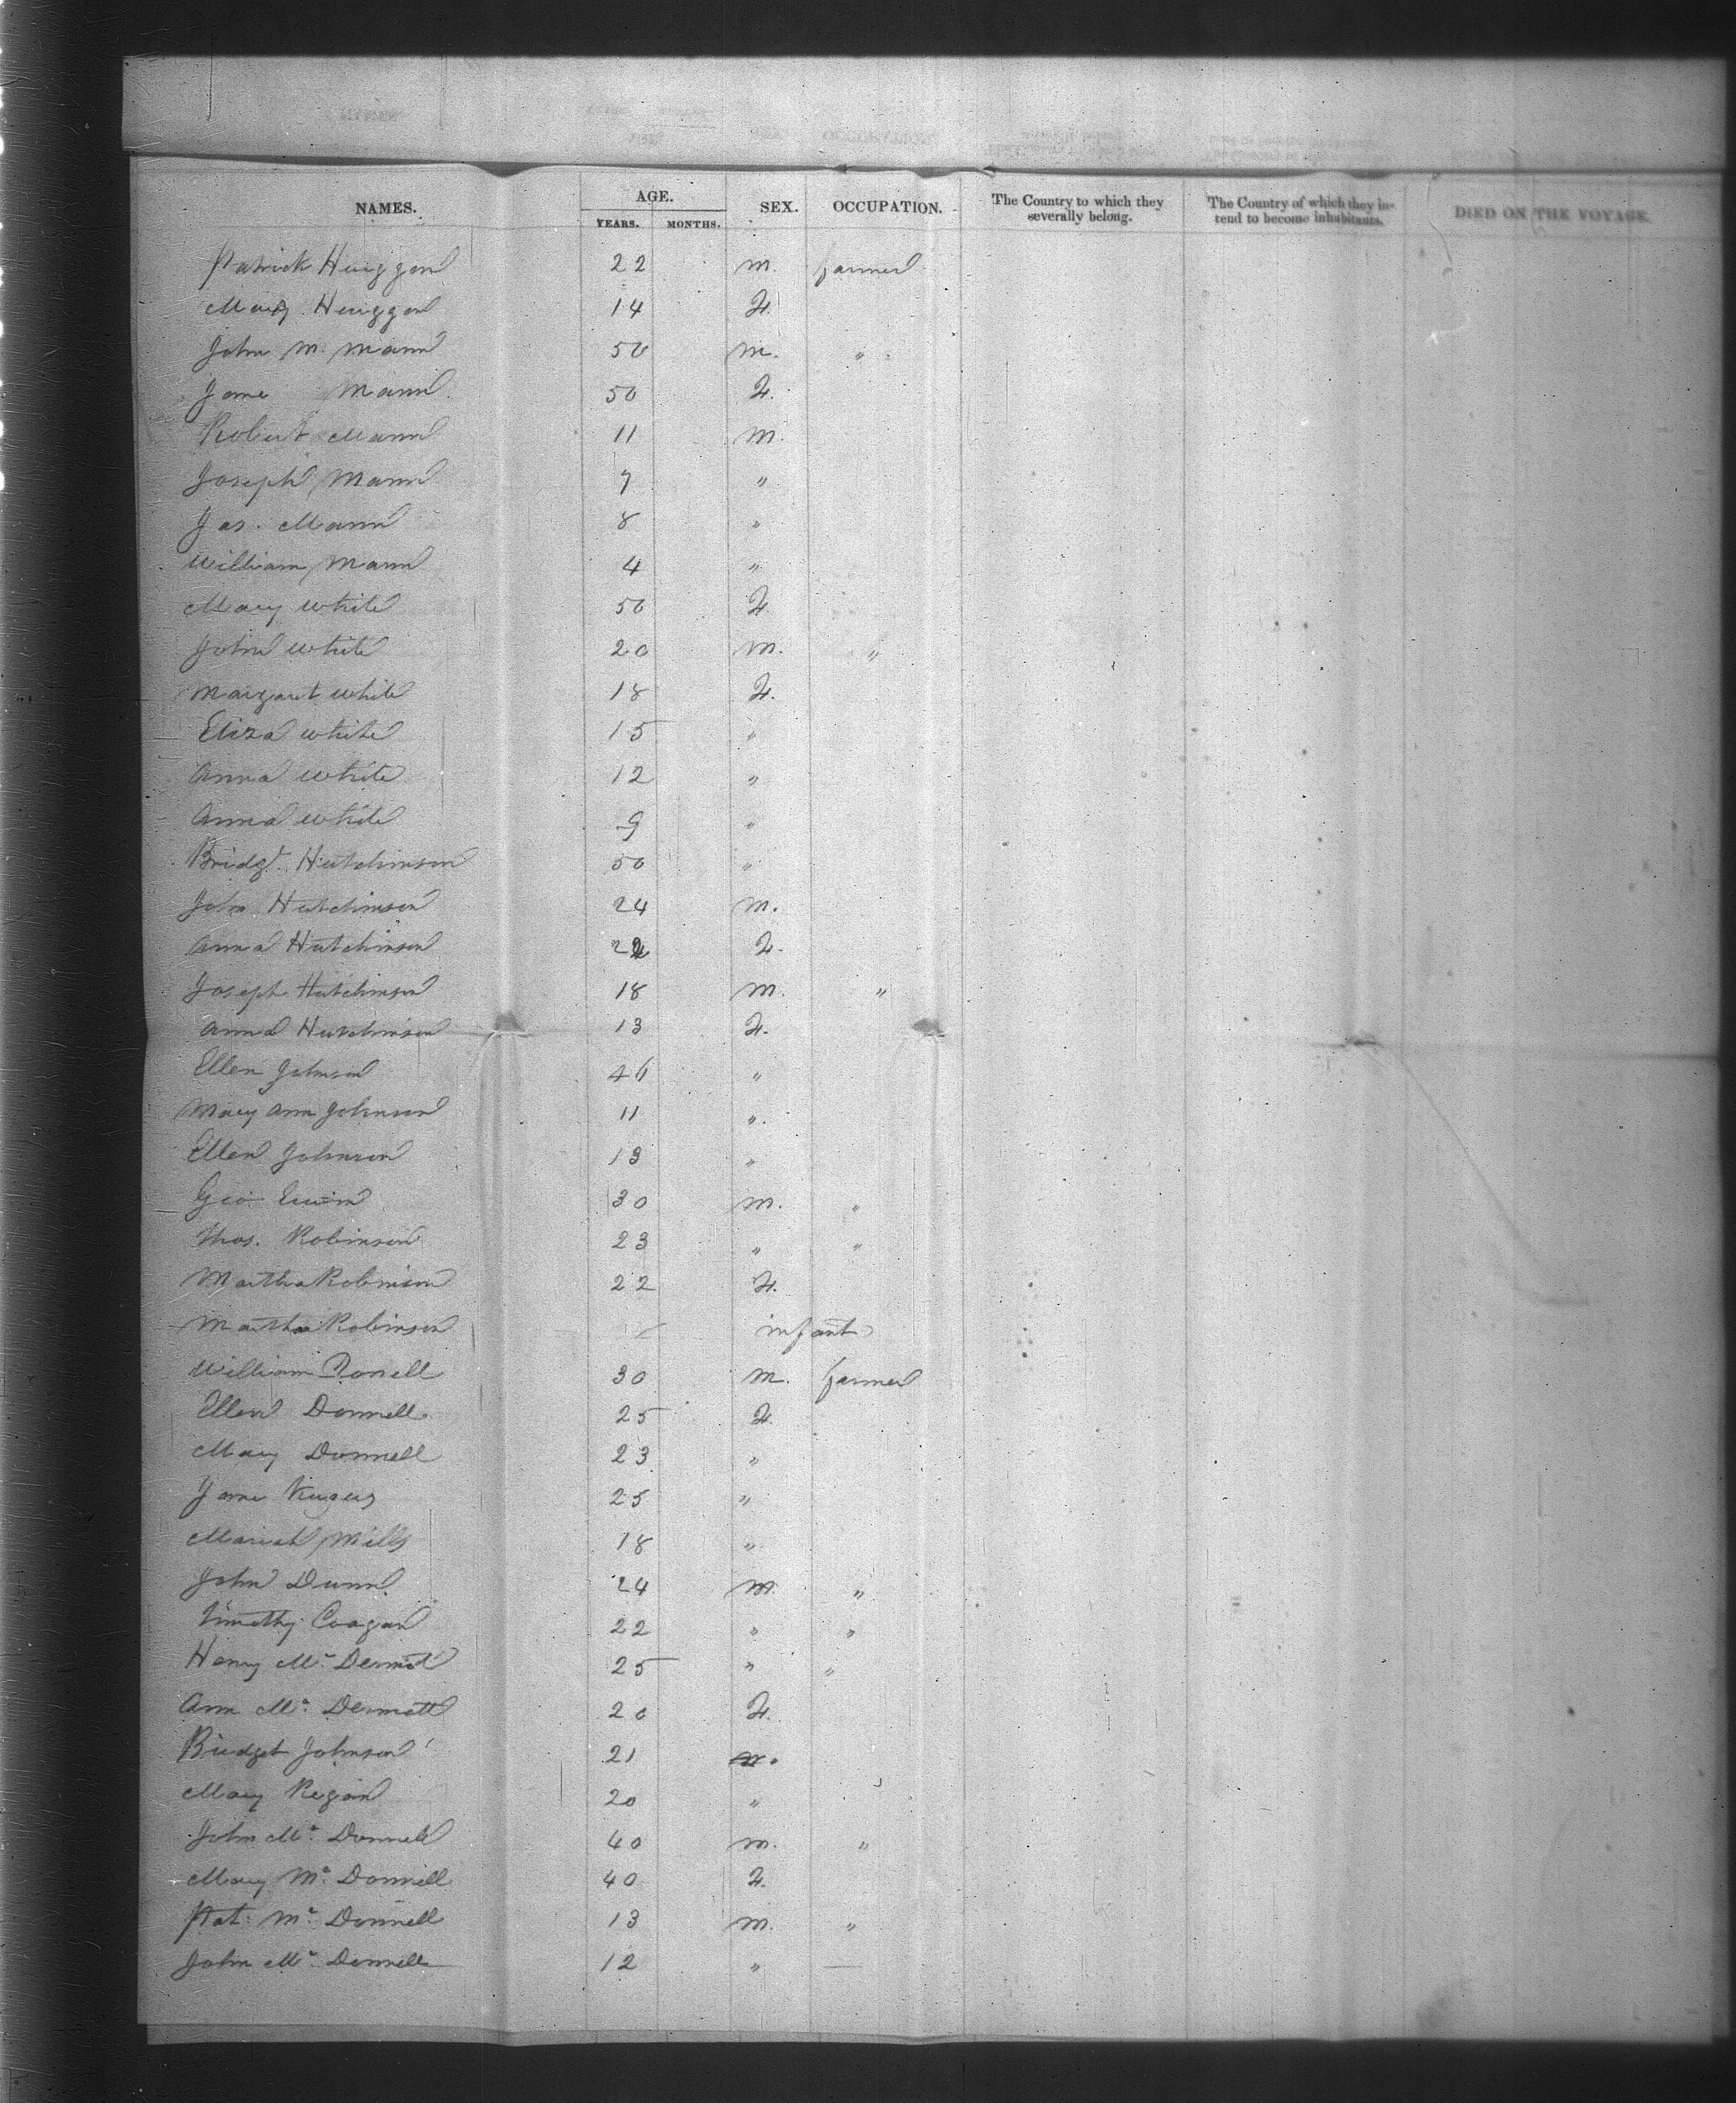 NAMES. AGE. SEX. OCCUPATION. The Country to which they severally belong. The Country of which they intend to become inhabitants. DIED ON THE VOYAGE.
YEARS. MONTHS.
Patrick 22 m. farmer
Mary 14 F.
John M. Mann 50 m. "
Jane Mann 50 F.
Robert Mann 11 m.
Joseph Mann 7 "
Jas. Mann 8 "
William Mann 4 "
Mary White 50 F.
John White 20 m. "
Margaret White 18 F.
Eliza White 15 "
Anna White 12 "
Anna White 9 "
Bridgt. Hutchinson 50 "
John Hutchinson 24 m.
Anna Hutchinson F.
Joseph Hutchinson 18 m. "
Anna Hutchinson 13 F.
Ellen Johnson "
Mary Ann Johnson 11 "
Ellen Johnson 13 "
Geo 30 m. "
Thos. Robinson 23 " "
Martha Robinson 22 F.
Martha Robinson infant
William 30 m. farmer
Ellen Donnell 25 F.
Mary Donnell 23 "
Jane 25 "
Mariah Mills 18 "
John Dunn 24 m. "
Timothy Coogan 22 " "
Henry Mc. Dermot 25 " "
Ann Mc. Dermott 20 F.
Bridget Johnson 21
Mary Regan 20 "
John Mc. Donnell 40 m. "
Mary Mc. Donnell 40 F.
Pat. Mc. Donnell 13 m. "
John Mc. Donnell 12 " —